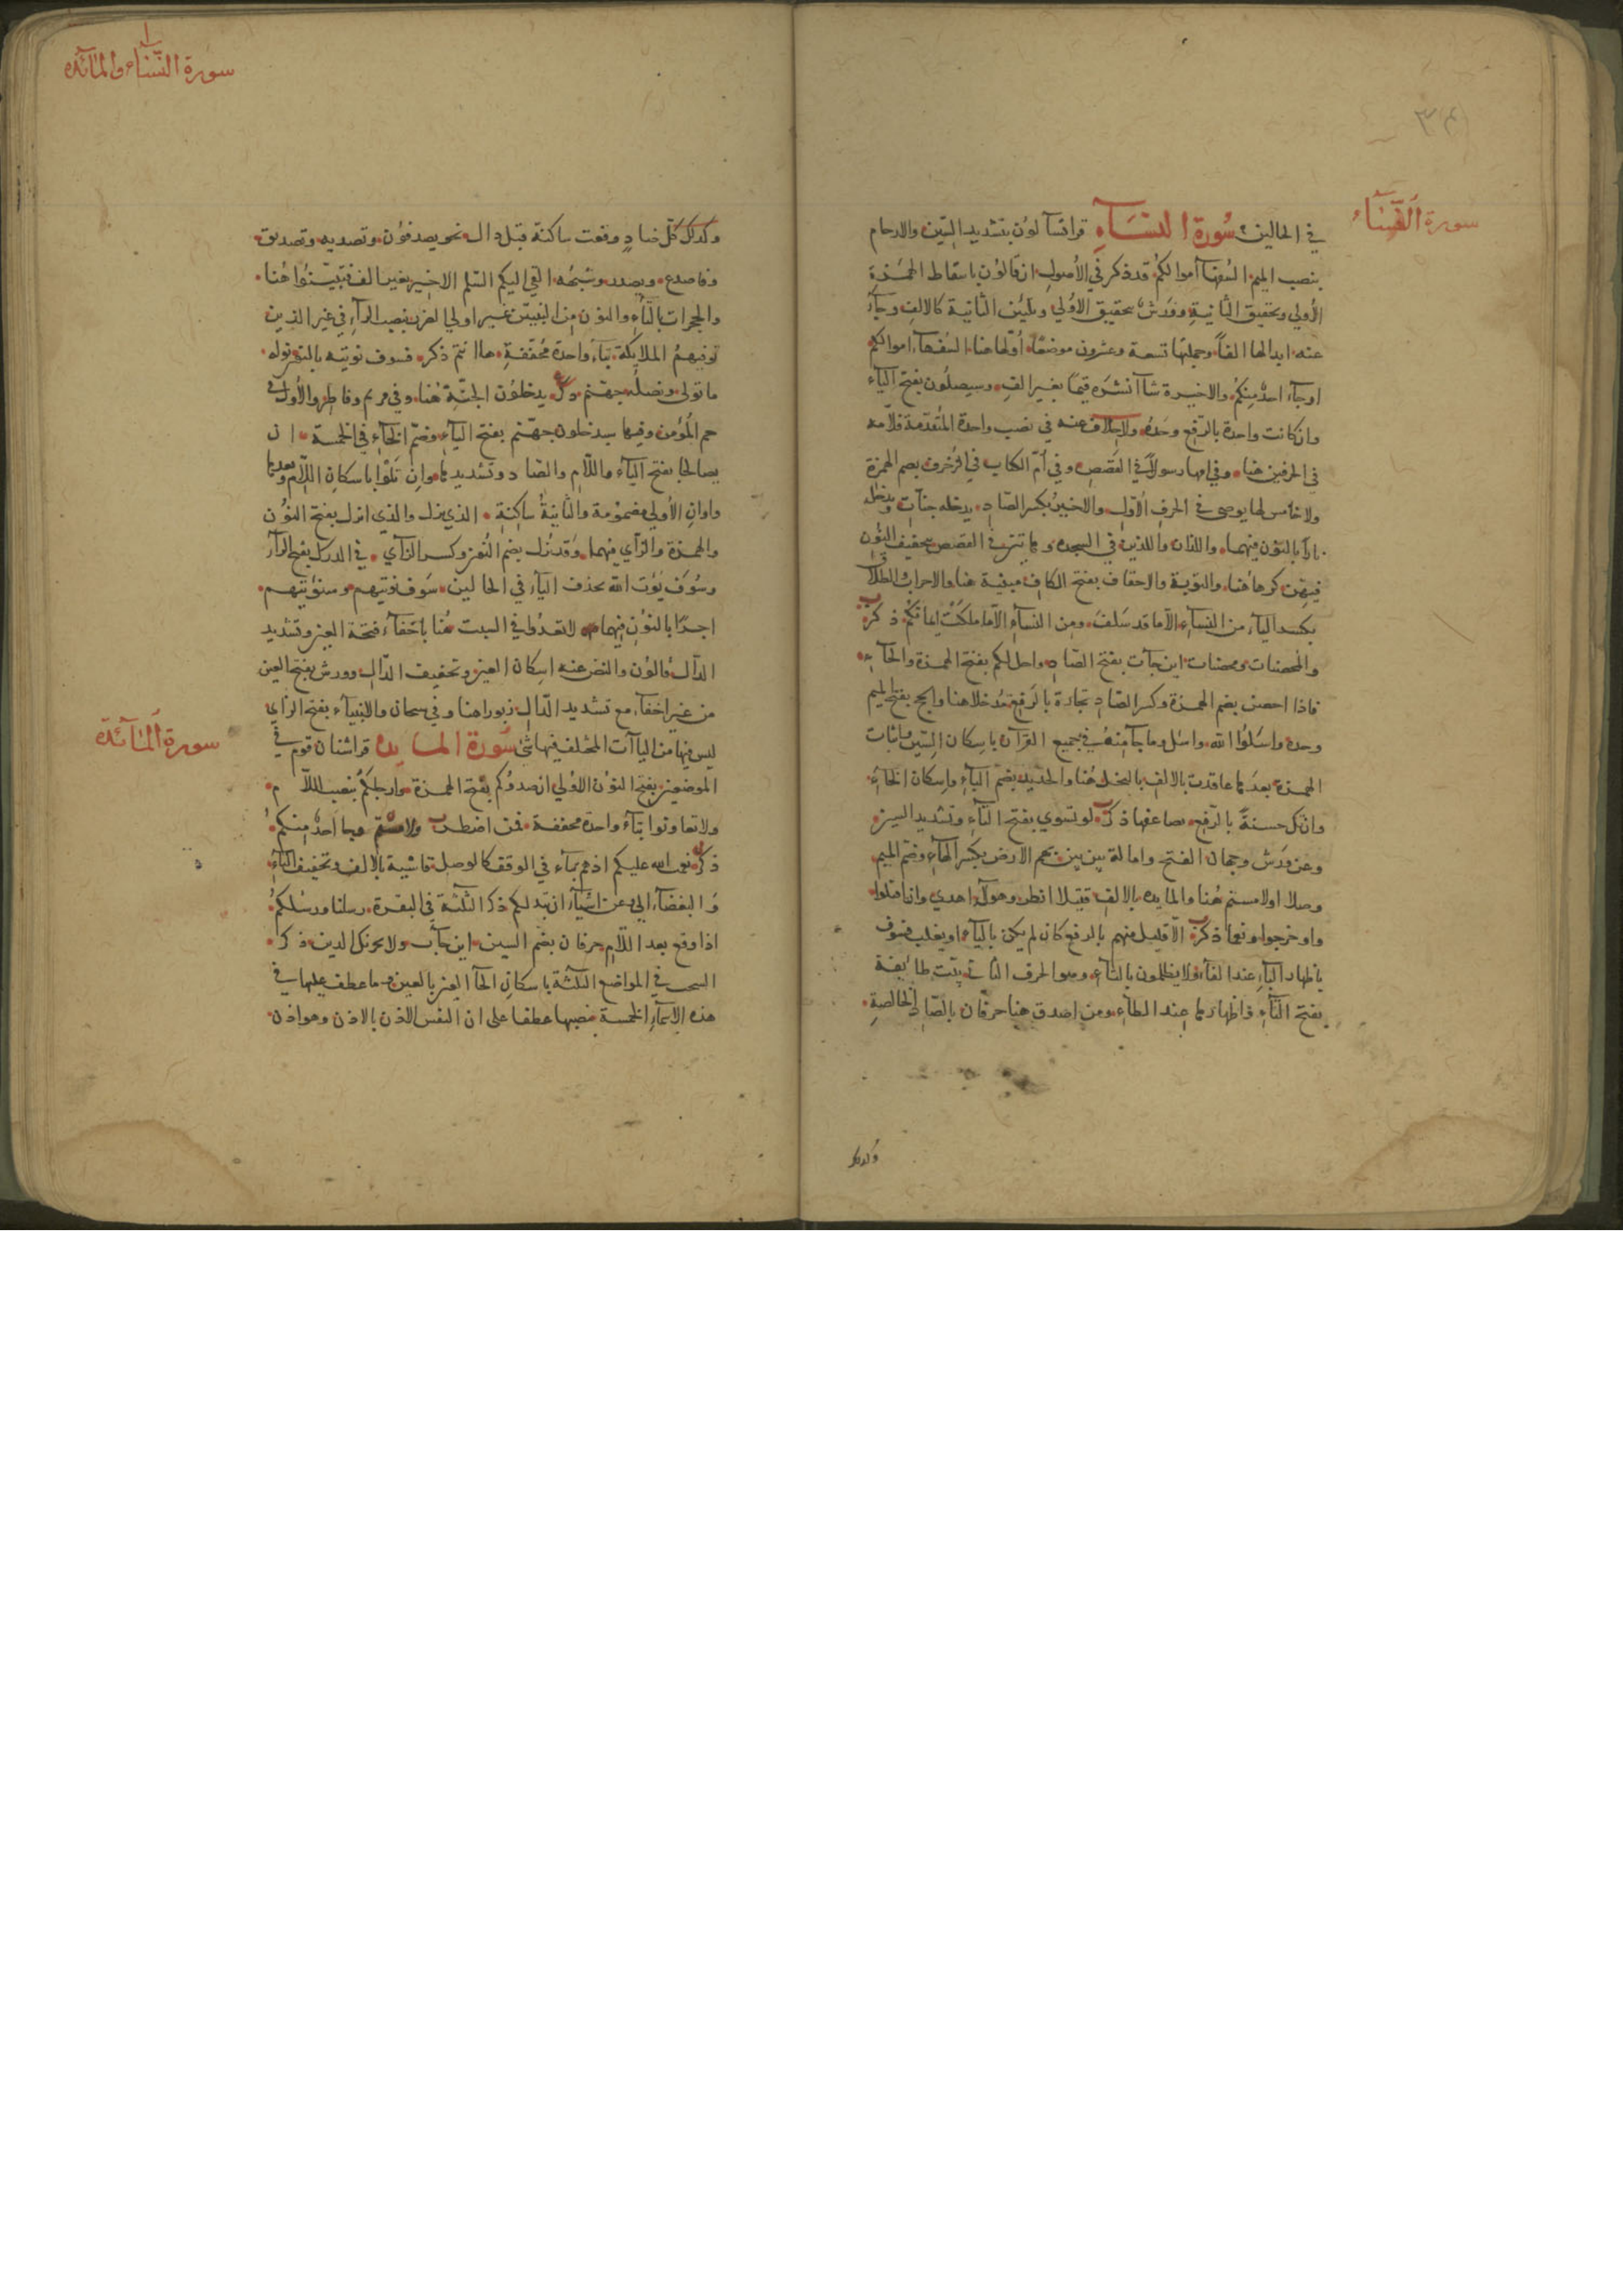 سورة النسآء
في الحالين سُورة النسَآءِ قرا تسآلون بتشديد السّين والارحام
بنصب الميم السُفهآ أموالكُم قد ذكر في الأصول ان قالون باسقاط الهمزة
الأولي وتحقيق الثانية وورش بتحقيق الأولي وتليين الثانية كالالف وجآء
عنه ابدالها الفاً وجملتها تسعة وعشرون موضعًا أولها هنا السُفهآء اموالكم
اوجآء احدٌ مِنكُم والاخيرة شآ انشره قِيمًا بغير الف وسيصلون بفتح اليآء
وان كانت واحدة بالرفع وحدهُ ولاخلاف عنه في نصب واحدة المُتقدمة فلامه
في الحرفين هنا وفي امها رسولاً في القصص وفي أمّ الكتاب في الزخرف بضم الهمزة
ولا خامس لها يوصى في الحرف الأول والاخير بكسر الصّاد يدخله جنّات ويدخله
نارًا بالنون فيهما واللذان واللذين في السجده وهاتين في القصص بتخفيف النون
فيهن كرها هُنا والتوبة والاحقاف بفتح الكاف مبينة هنا والاحزاب والطلاق
بكسر اليآء من النسآء الّا ما قد سَلفَ ومن النسآء الّا ما ملكت ايمانكم ذكر
والمحصنات ومحصنات اين جآت بفتح الصّاد واحل لكم بفتح الهمزة والحآء
فاذا احصن بضم الهمزة وكسر الصّاد تجارة بالرفع مُدخلا هنا والحج بفتح الميم
وحده واسَئلُوا الله واسئل وما جآ مِنهُ في جميع القرآن باسكان السّين واثبات
الهمزة بعدها عاقدت بالالف بالبخل هُنا والحديد بضم البآء واسكان الخآء
وان تك حسنةٌ بالرّفع يضاعفها ذكر لو تسوي بفتح التآء وتشديد السين
وعن وَرش وجهان الفتح وامالة بين بين بهم الارض بكسر الهآء وضم الميم
وصلا اولامستم هُنا والمايده بالالف فتيلا انظر وهولآ اهدي وان اقتلوا
واو اخرجوا ونعما ذكر الّا قليل منهم بالرفع كان لم يكن باليآء اويغلب فسوف
باظهار البآء عند الفآء ولا يظلمون بالتآء وهو الحرف الثاني بيّت طائفة
بفتح التآء واظهارها عِند الطآء ومن اصدق هنا حرفان بالصّاد الخالصةِ
وكذلك
سورة النسآء والمآئدة
وكذلك كلّ صادٍ وقعت ساكنة قبل دال نحو يصدفون وتصديه وتصديق
وفاصدع ويصدر وشبهُه القي اليكم السّلم الاخير بغير الف فتبيّنُوا هُنا
والحجرات بالبآء والنون من التبيّن غير اولي الضرر بنصب الرآء في غير الذين
توفيهمُ الملايكة بتآء واحدة مُخففةٍ هاانتم ذكر فسوف نوتيه بالنون نوله
ما تولى ونصله جهنم ذكر يدخلون الجنّة هُنا وفي مريم وفاطر والأول في
حم المُؤمن وفيها سيدخلون جهنم بفتح اليآء وضمّ الخآء في الخمسة ان
يصالحا بفتح اليآء واللّام والصّاد وتشديدها وان تلوُا باسكان اللام وبعدها
واوان الأولي مضمومة والثانيةُ ساكنة الذي نزل والذي انزل بفتح النون
والهمزة والزّآي فيهما وقد نُزل بضم النون وكسر الزآي في الدرك بفتح الرآء
وسَوف يُؤت الله بحذف اليآء في الحالين سَوف نوتيهم وسنؤتيهم
اجرًا بالنون فيهما لا تعدُوا في السبت هُنا باخفآء فتحة العين وتشديد
الدّال قالون والنص عنه اسكان العين وتخفيف الدّال وورش بفتح العين
من غير اخفآء مع تشديد الدّال زبورا هنا وفي سبحان والانبيآء بفتح الزاي
ليس فيها من اليآآت المختلف فيها شئ سُورة المايده قرا شنان قوم في
سورة المآئدة
الموضعين بفتح النون الاولي ان صدوكم بفتح الهمزة وارجلكم بنصب اللام
ولاتعاونوا بتآء واحدة مخففة فمن اضطر ولامستم وجا احدٌ منكم
ذكر نعمت الله عليكم اذ هم بتآء في الوقف كالوصل قاسية بالالف وتخفيف اليآء
وَالبغضآء الي وعن اشيآء ان تبد لكم ذكر الثلثة في البقرة رسلنا ورسُلكم
اذا وقع بعد اللّام حرفان بضم السين اين جآب ولا يحزنك الذين ذكر
السحت في المواضع الثلثة باسكان الحآ العين بالعين وما عطف عليها في
هذه الاسمآء الخمسة بنصبها عطفا على ان النفس الاذن بالاذن وهو اذن